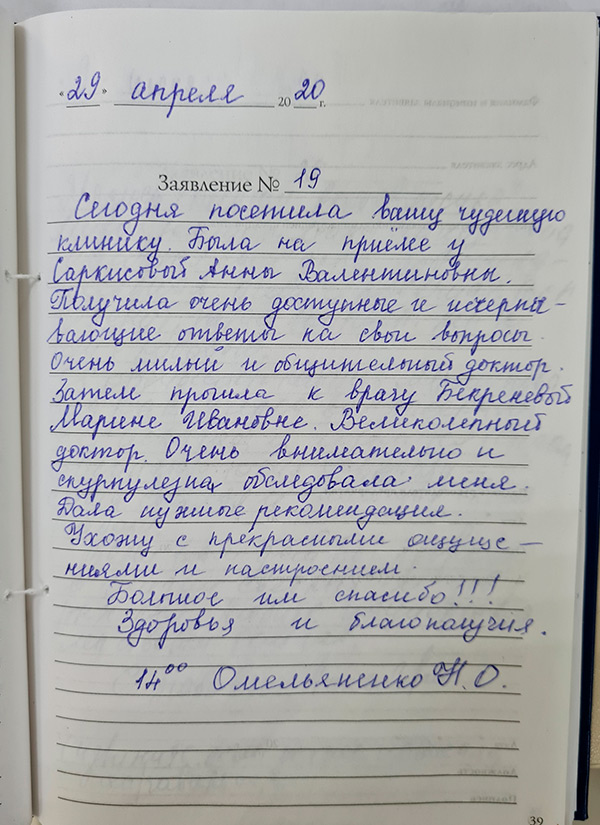 «29» апреля 2020 г.
Заявление № 19
Сегодня посетила вашу чудесную
клинику. Была на приёме у
Саркисовый Анны Валентиновны.
Получила очень доступные и исчерпы-
вающие ответы на свои вопросы.
Очень милый и общительный доктор.
Затем прошла к врачу Бекреневый
Марине Ивановне. Великолепный
доктор. Очень внимательно и
скурпулезна обследовала меня.
Дала нужные рекомендация.
Ухожу с прекрасными ощуще-
ниями и настроением.
Большое им спасибо!!!
Здоровья и благополучия.
14⁰⁰ Омельяненко Н.О.
39